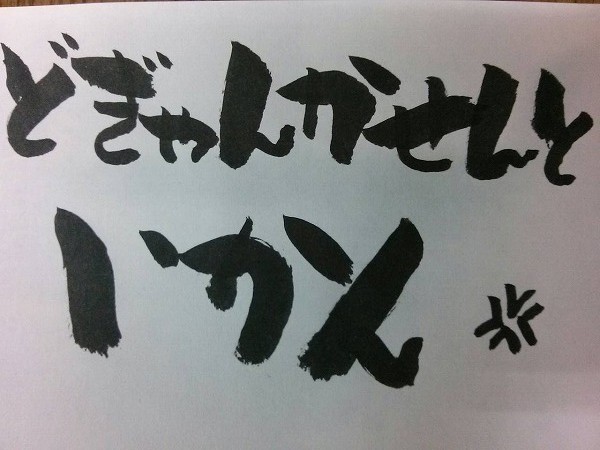 どぎゃんかせんと
いかん